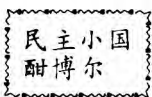 民主小国
酣博尔